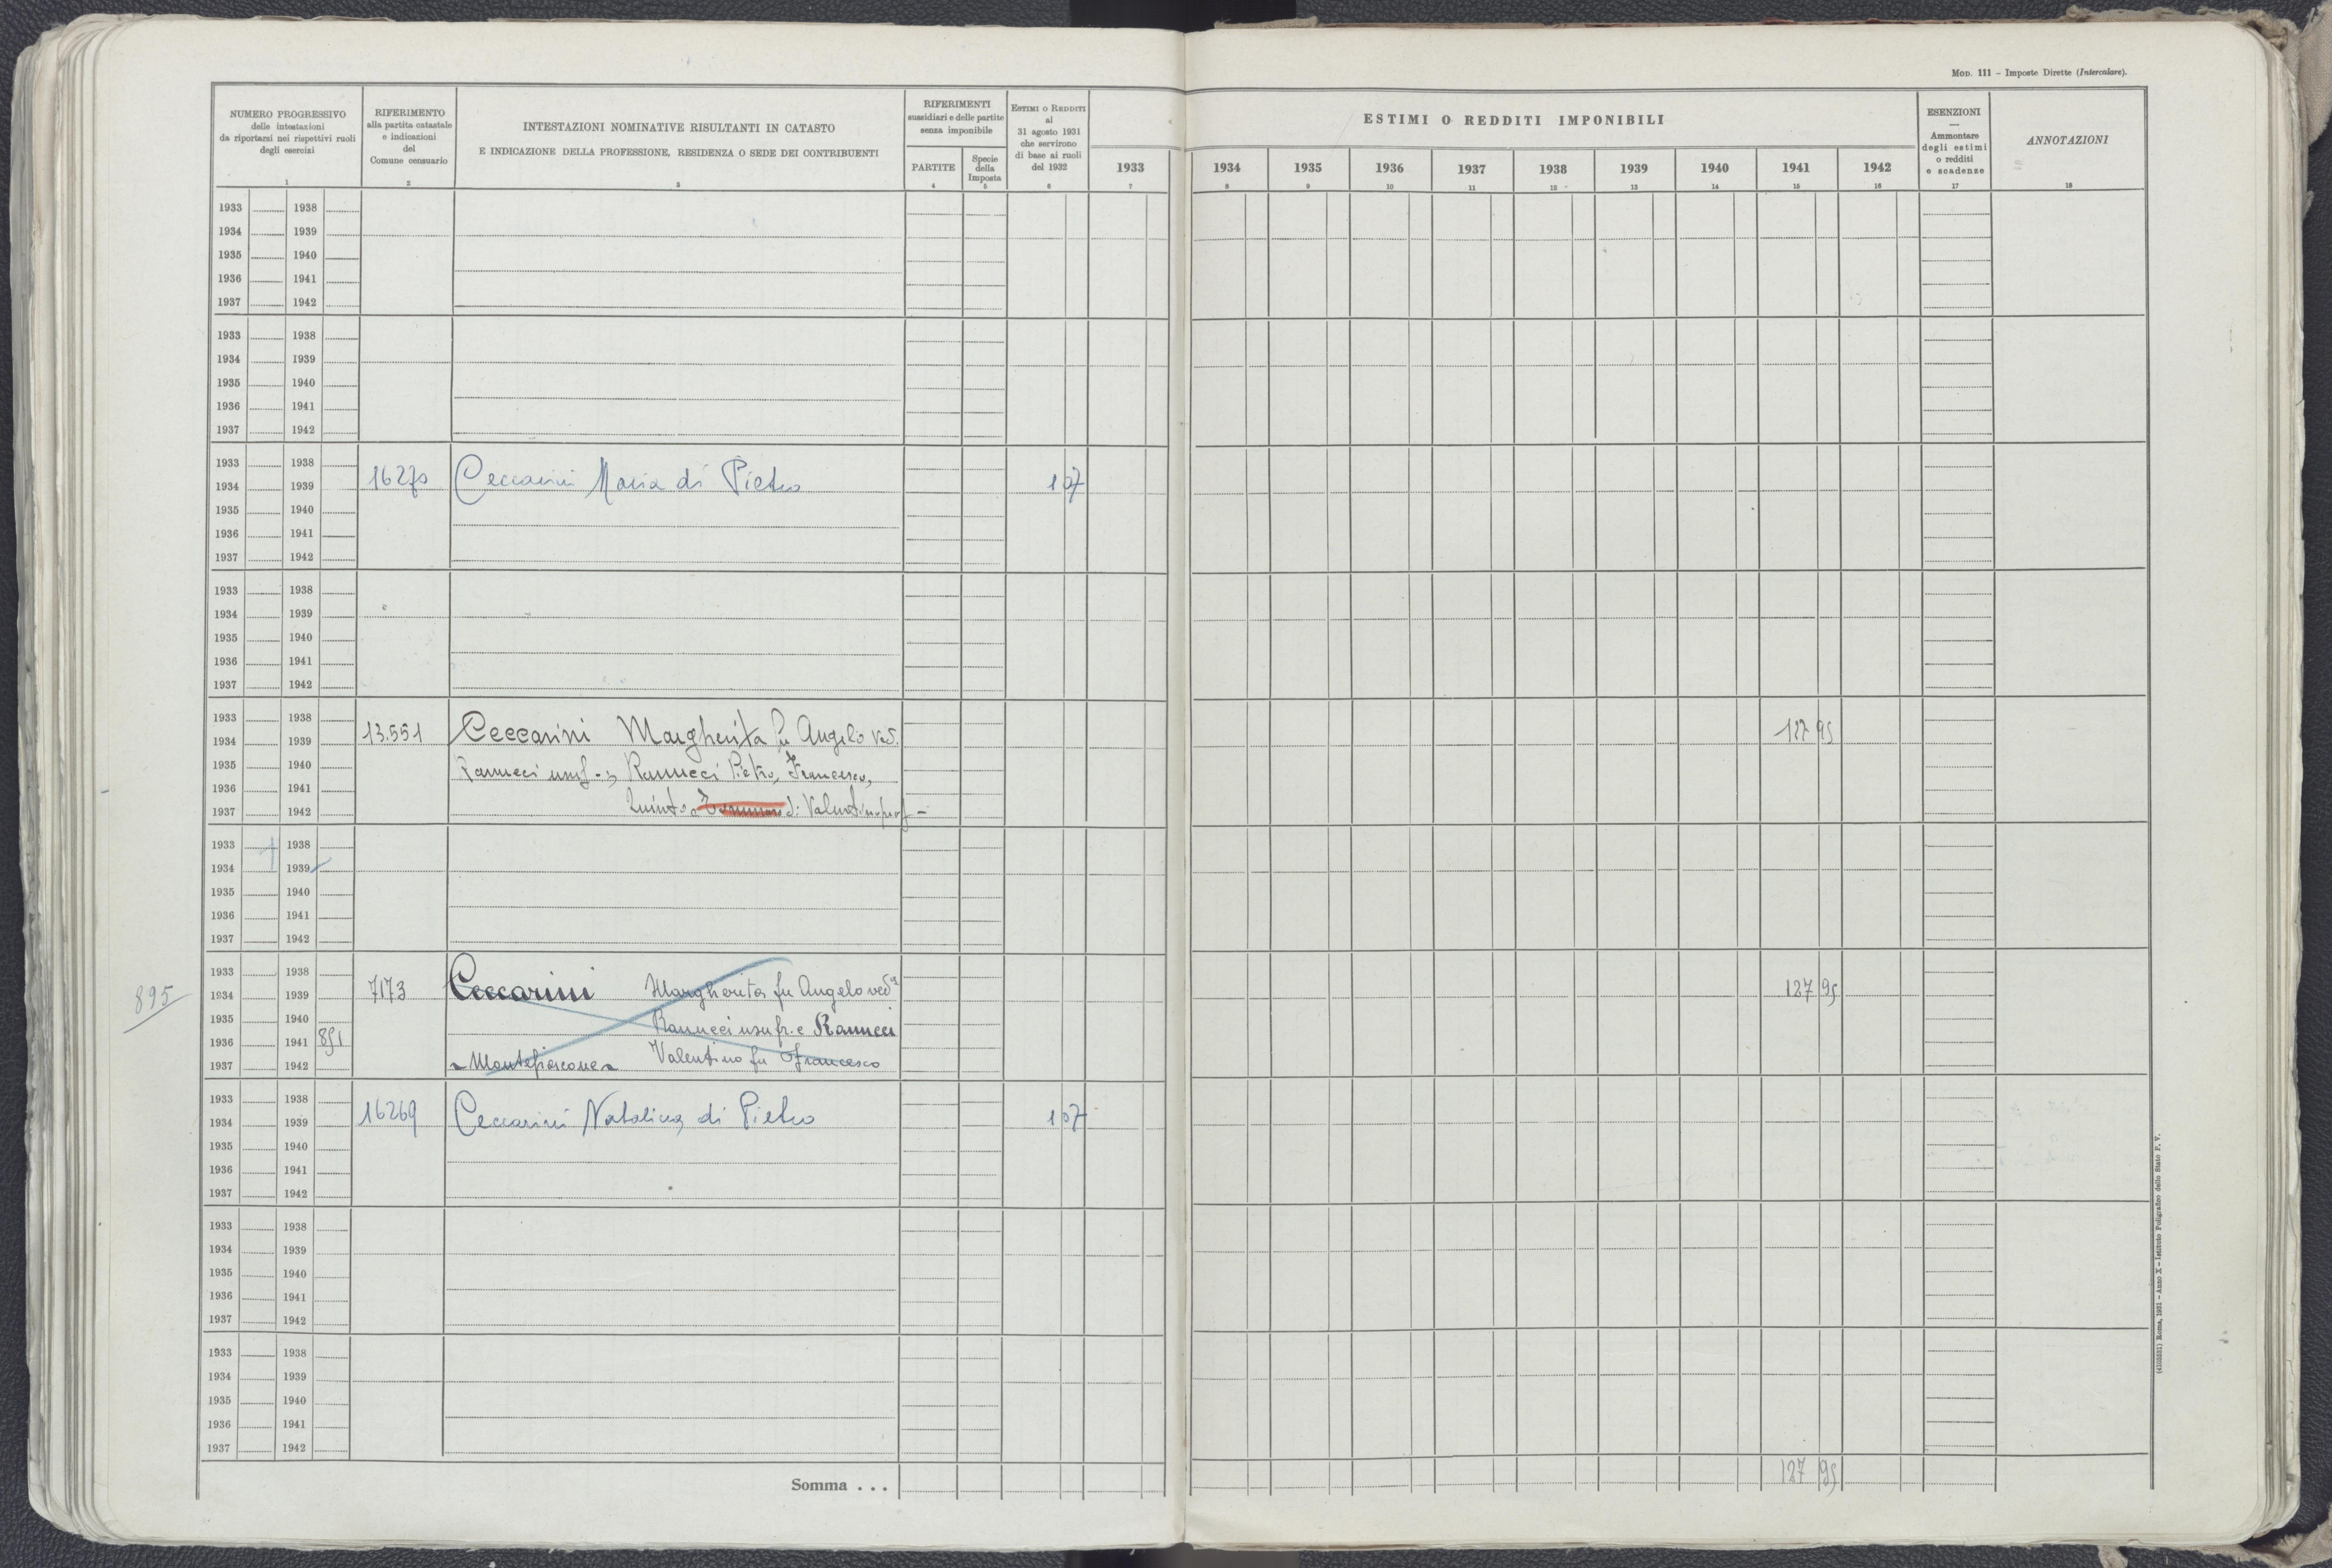 MOD. 111 – Imposte Dirette (Intercalare).
NUMERO PROGRESSIVO
delle intestazioni
da riportarsi nei rispettivi ruoli
degli esercizi
1
RIFERIMENTO
alla partita catastale
e indicazioni
del
Comune censuario
2
INTESTAZIONI NOMINATIVE RISULTANTI IN CATASTO
E INDICAZIONE DELLA PROFESSIONE, RESIDENZA O SEDE DEI CONTRIBUENTI
3
RIFERIMENTI
sussidiari e delle partite
senza imponibile
PARTITE
4
Specie
della
Imposta
5
ESTIMI O REDDITI
al
31 agosto 1931
che servirono
di base ai ruoli
del 1932
6
1933
7
ESTIMI O REDDITI IMPONIBILI
1934 1935 1936 1937 1938 1939 1940 1941 1942
8 9 10 11 12 13 14 15 16
ESENZIONI
—
Ammontare
degli estimi
o redditi
e scadenze
17
ANNOTAZIONI
18
1933 1938
1934 1939
1935 1940
1936 1941
1937 1942
1933 1938
1934 1939
1935 1940
1936 1941
1937 1942
1933 1938
1934 1939 16270 Ceccarini Maria di Pietro 107
1935 1940
1936 1941
1937 1942
1933 1938
1934 1939
1935 1940
1936 1941
1937 1942
1933 1938
1934 1939 13.551 Ceccarini Margherita fu Angelo ved. 127 95
1935 1940 Ranucci usuf.-, Ranucci Pietro, Francesco,
1936 1941
1937 1942 Quinto di Valentino prop -
1933 1938
1934 1939
1935 1940
1936 1941
1937 1942
1933 1938
895 1934 1939 7173 Ceccarini Margherita fu Angelo ved.a 127 95
1935 1940 Ranucci usufr. e Ranucci
1936 1941 851
1937 1942 - Montefiascone - Valentino fu Francesco
1933 1938
1934 1939 16269 Ceccarini Natalina di Pietro 107
1935 1940
1936 1941
1937 1942
1933 1938
1934 1939
1935 1940
1936 1941
1937 1942
1933 1938
1934 1939
1935 1940
1936 1941
1937 1942
Somma . . . 127 95
(4103531) Roma, 1931 – Anno X – Istituto Poligrafico dello Stato P. V.